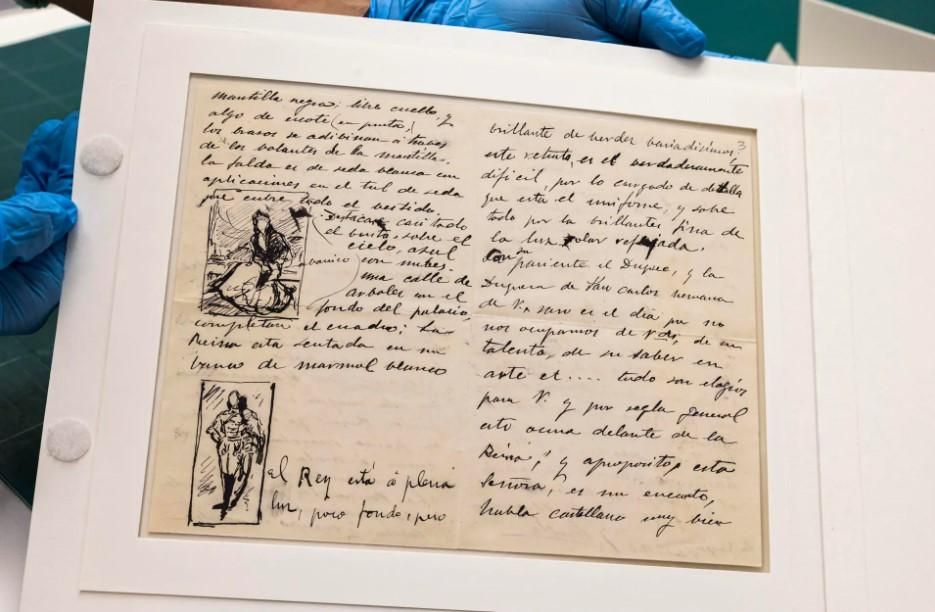 mantilla negra; libre cuello, y
algo de escote (en punta,)
los brasos se adibinan a traves
de los volantes de la mantilla.
la falda es de seda blanca con
aplicaciones en el tul de seda
que cubre todo el bestido.
Destacase casi todo
el busto, sobre el
cielo, azul
abanico
con nubes.
una calle de
arboles en el
fondo del palacio,
completan el cuadro; La
Reina esta sentada en un
banco de marmol blanco
El Rey está á plena
luz, poco fondo, pero
3
brillante de verdes variadisimos;
este retrato, es el verdaderamente
dificil, por lo cargado de detalle
que esta el uniforme, y sobre
todo por la brillantes fina de
la luz solar reflejada.
Con su pariente el Duque, y la
Duquesa de San Carlos hermana
de V. raro es el dia que no
nos ocupamos de Vds, de su
talento, de su saber en
arte et.... todo son elogios
para V. y por regla general
esto ocurre delante de la
Reina, y aproposito, esta
señora, es un encanto,
habla castellano muy bien